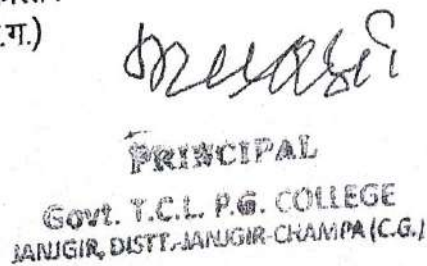 .ग.)
PRINCIPAL
Govt. T.C.L. P.G. COLLEGE
JANJGIR, DISTT.-JANJGIR-CHAMPA (C.G.)